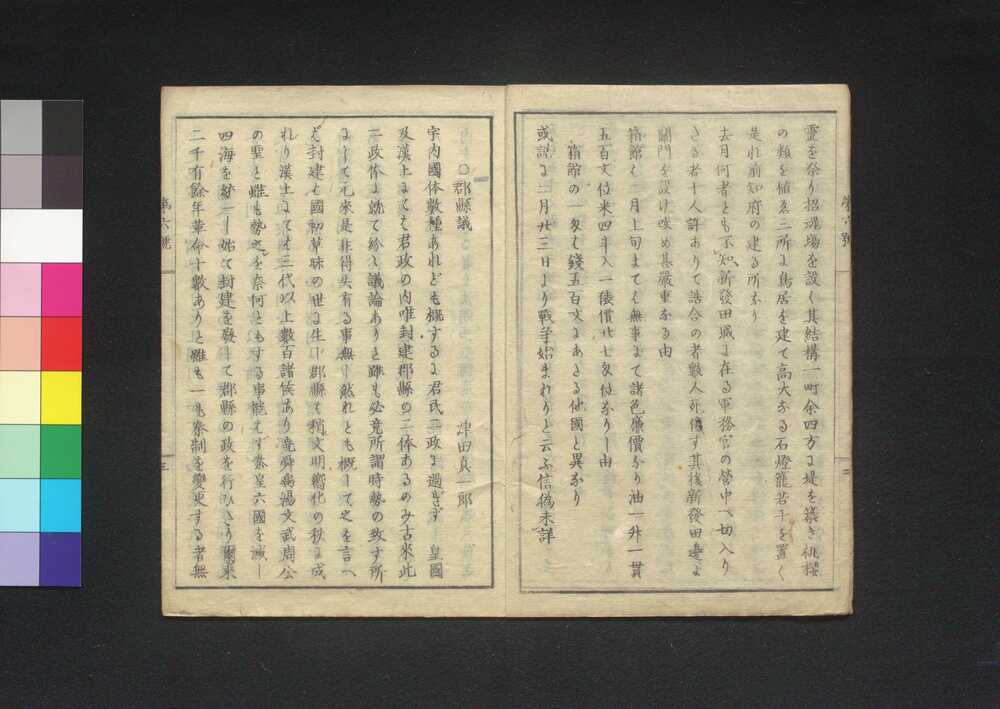 霊を祭り招魂場を設く其結構一町余四方に堤を築き桃櫻
の類を植ゑ三所に鳥居を建て高大なる石燈籠若干を置く
是れ前知府の建る所なり
去月何者とも不知新發田城に在る軍務官の營中へ切入り
さる者十人許ありて詰合の者數人死傷す其後新發田邊は
關門を設け改め甚嚴重なる由
箱館も二月上旬までは無事にて諸色廉價なり油一升一貫
五百文位米四斗入一俵價廿七匁位なりし由
箱館の一匁は錢五百文にあたる他國と異なり
或説に二月廿三日より戰爭始まれりと云ふ信偽未詳
第六號
二
○郡縣議
津田真一郎
宇内國体數種あれども概するに君民二政に過ぎず 皇國
及漢土にても君政の内唯封建郡縣の二体あるのみ古來此
二政体に就て紛々議論ありと雖も必竟所謂時勢の致す所
にして元來是非得失有る事無し然れとも概して之を言へ
は封建は國初草昧の世に生し郡縣は稍文明嚮化の秋に成
れり漢土にては三代以上數百諸侯あり堯舜禹湯文武周公
の聖と雖も勢之を奈何ともする事能はす秦皇六國を滅し
四海を統一し始て封建を廢して郡縣の政を行ひたり爾來
二千有餘年革命十數ありと雖も一も秦制を變更する者無
第六號
三